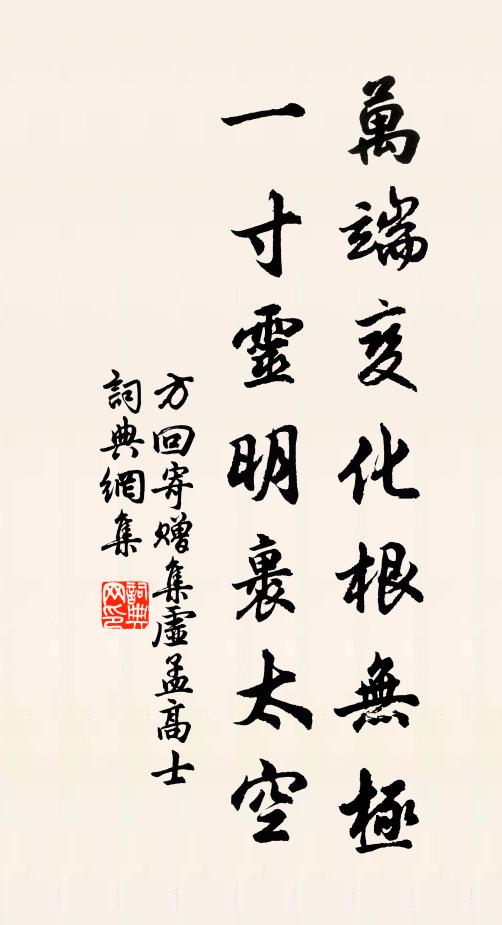 萬端变化根無極
一寸靈明裹太空
方回寄贈集虛孟高士
詞典網集
詞典网印